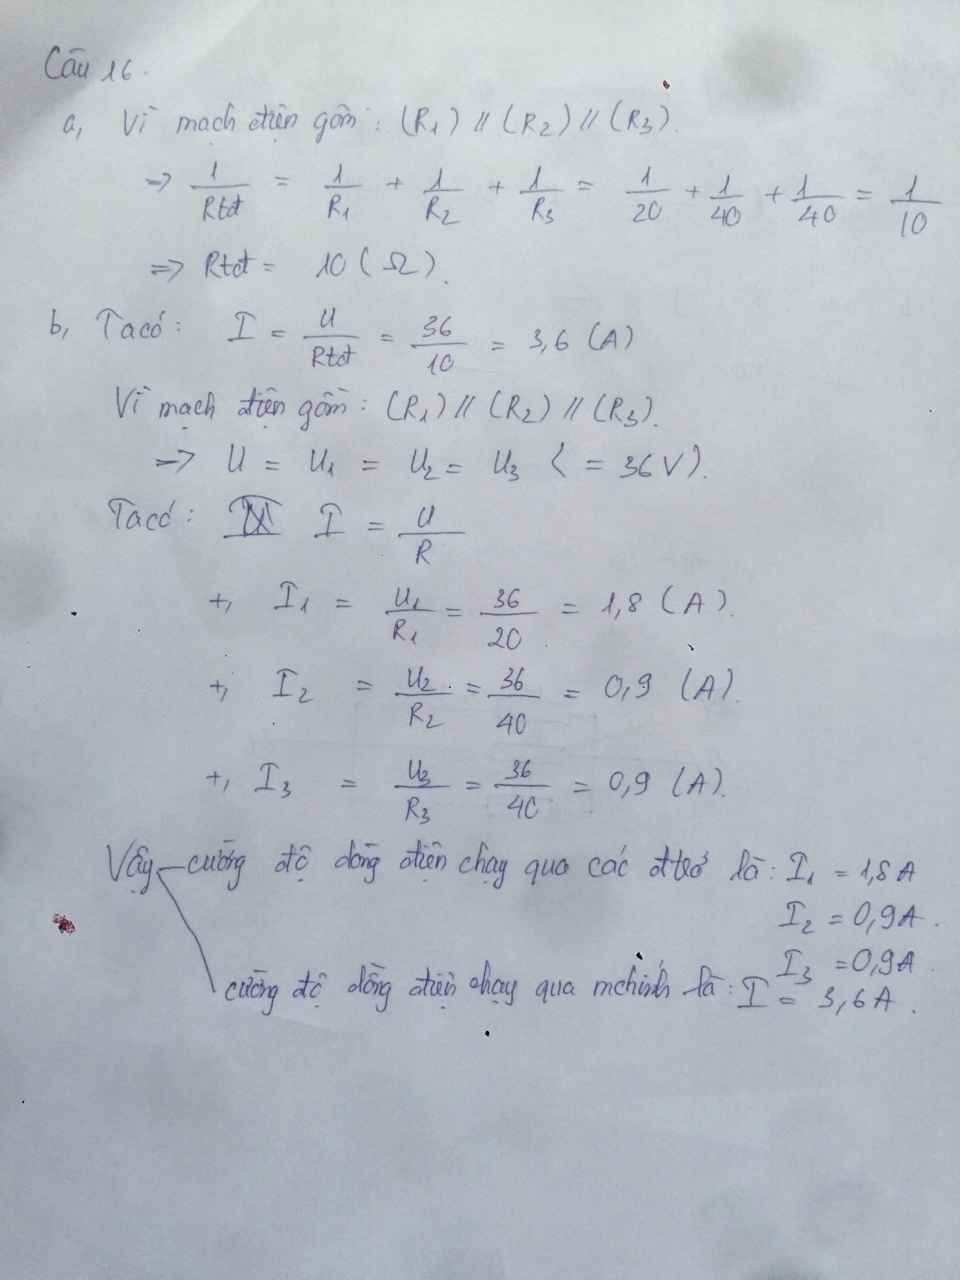 Câu 16.
a, Vì mạch điện gồm: (R1) // (R2) // (R3).
=> 1/Rtđ = 1/R1 + 1/R2 + 1/R3 = 1/20 + 1/40 + 1/40 = 1/10
=> Rtđ = 10 (Ω).
b, Ta có: I = U/Rtđ = 36/10 = 3,6 (A)
Vì mạch điện gồm: (R1) // (R2) // (R3).
=> U = U1 = U2 = U3 (= 36V).
Ta có: I = U/R
+, I1 = U1/R1 = 36/20 = 1,8 (A).
+, I2 = U2/R2 = 36/40 = 0,9 (A).
+, I3 = U3/R3 = 36/40 = 0,9 (A).
Vậy cường độ dòng điện chạy qua các đtrở là: I1 = 1,8A
I2 = 0,9A.
I3 = 0,9A.
cường độ dòng điện chạy qua mchính là: I = 3,6A.